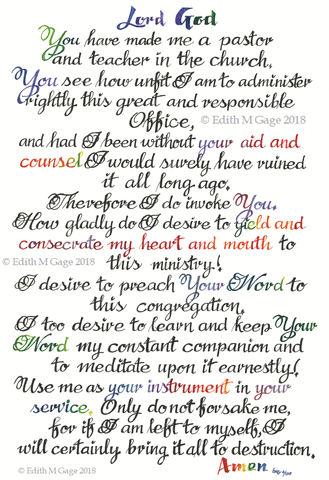 Lord God
You have made me a pastor
and teacher in the church,
You see how unfit I am to administer
rightly this great and responsible
Office,
© Edith M Gage 2018
and had I been without your aid and
counsel I would surely have ruined
it all long ago.
Therefore I do invoke You.
How gladly do I desire to yield and
consecrate my heart and mouth to
this ministry!
© Edith M Gage 2018
I desire to preach Your Word to
this congregation.
I too desire to learn and keep Your
Word my constant companion and
to meditate upon it earnestly!
Use me as your instrument in your
service. Only do not forsake me,
for if I am left to myself, I
will certainly bring it all to destruction.
Amen
© Edith M Gage 2018